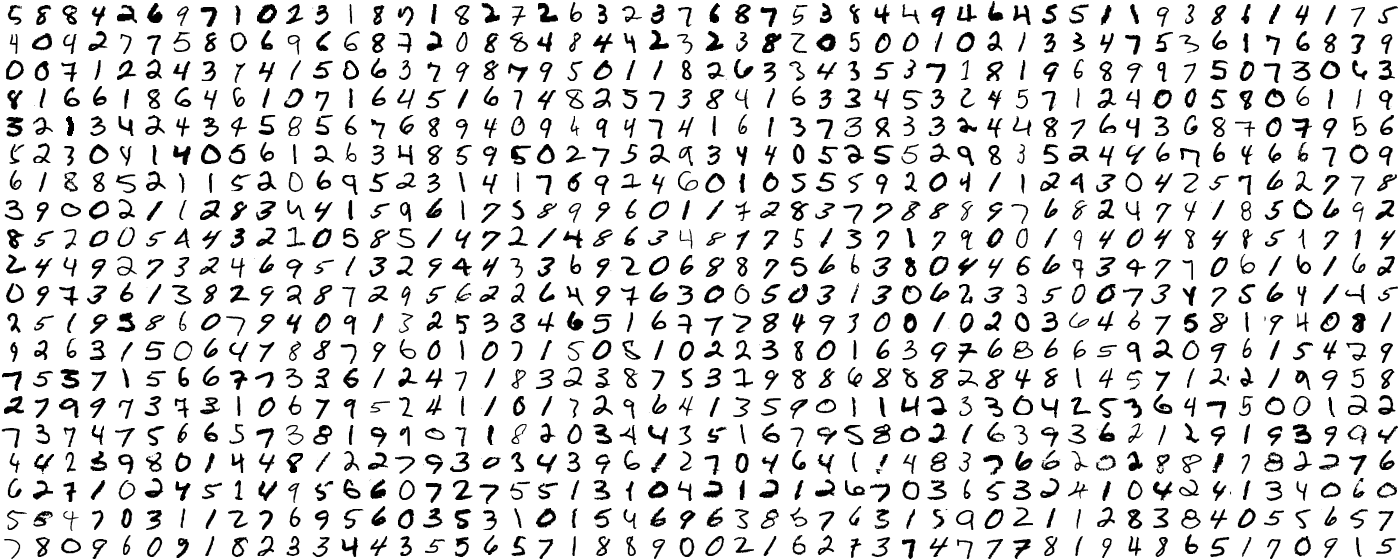 5 8 8 4 2 6 9 7 1 0 2 3 1 8 7 1 8 2 7 2 6 3 2 3 7 6 8 7 5 3 8 4 4 9 4 6 4 5 5 1 1 9 3 8 6 1 4 1 7 5
4 0 4 2 7 7 5 8 0 6 9 6 6 8 7 2 0 8 8 4 8 4 4 2 3 2 3 8 2 0 5 0 0 1 0 2 1 3 3 4 7 5 3 6 1 7 6 8 3 9
0 0 7 1 2 2 4 3 7 4 1 5 0 6 3 7 9 8 7 9 5 0 1 1 8 2 6 3 3 4 3 5 3 7 1 8 1 9 6 8 9 9 7 5 0 7 3 0 6 3
8 1 6 6 1 8 6 4 6 1 0 7 1 6 4 5 1 6 7 4 8 2 5 7 3 8 4 1 6 3 3 4 5 3 2 4 5 7 1 2 4 0 0 5 8 0 6 1 1 9
3 2 1 3 4 2 4 3 4 5 8 5 6 7 6 8 9 4 0 9 4 9 4 7 4 1 6 1 3 7 3 8 3 3 2 4 4 8 7 6 4 3 6 8 7 0 7 9 5 6
5 2 3 0 4 1 4 0 5 6 1 2 6 3 4 8 5 9 5 0 2 7 5 2 9 3 4 4 0 5 2 5 5 2 9 8 3 5 2 4 4 6 7 6 4 6 6 7 0 9
6 1 8 8 5 2 1 1 5 2 0 6 9 5 2 3 1 4 1 7 6 9 2 4 6 0 1 0 5 5 5 9 2 0 4 1 1 2 4 3 0 4 2 5 7 6 2 7 7 8
3 9 0 0 2 1 1 2 8 3 4 4 1 5 9 6 1 7 5 8 9 9 6 0 1 1 7 2 8 3 7 7 8 8 8 9 7 6 8 2 4 7 4 1 8 5 0 6 9 2
8 5 2 0 0 5 4 4 3 2 1 0 5 8 5 1 4 7 2 1 4 8 6 3 4 8 7 7 5 1 3 7 1 7 9 0 0 1 9 4 0 4 8 4 8 5 1 7 1 4
2 4 4 9 2 7 3 2 4 6 9 5 1 3 2 9 4 4 3 3 6 9 2 0 6 8 8 7 5 6 6 3 8 0 4 4 6 6 7 3 4 7 7 0 6 1 6 1 6 2
0 9 7 3 6 1 3 8 2 9 2 8 7 2 9 5 6 2 2 6 4 9 7 6 3 0 0 5 0 3 1 3 0 6 2 3 3 5 0 0 7 3 4 7 5 6 4 1 4 5
2 5 1 9 5 8 6 0 7 9 4 0 9 1 3 2 5 3 3 4 6 5 1 6 7 7 7 8 4 9 3 0 0 1 0 2 0 3 6 4 6 7 5 8 1 9 4 0 8 1
9 2 6 3 1 5 0 6 4 7 8 8 7 9 6 0 1 0 7 1 5 0 5 1 0 2 2 3 8 0 1 6 3 9 7 6 8 6 6 5 9 2 0 9 6 1 5 4 2 9
7 5 3 7 1 5 6 6 7 7 3 3 6 1 2 4 7 1 8 3 2 3 8 7 5 3 7 9 8 8 6 8 8 8 2 8 4 8 1 4 5 7 1 2 2 1 9 9 5 8
2 7 9 9 7 3 7 3 1 0 6 7 9 5 2 4 1 1 0 1 3 2 9 6 4 1 3 5 9 0 1 1 4 2 3 3 0 4 2 5 3 6 4 7 5 0 0 1 2 2
7 3 7 4 7 5 6 6 5 7 3 8 1 9 9 0 7 1 8 2 0 3 4 4 3 5 1 6 7 9 5 8 0 2 1 6 3 9 3 6 2 1 2 9 1 9 3 9 9 4
4 4 2 3 9 8 0 1 4 4 8 1 2 2 7 9 3 0 3 4 3 9 6 1 2 7 0 4 6 4 1 1 4 8 3 7 6 6 2 0 2 8 8 1 7 8 2 2 7 6
6 2 7 1 0 2 4 5 1 4 9 5 6 6 0 7 2 7 5 5 1 3 1 0 4 2 1 2 1 2 6 7 0 3 6 5 3 2 4 1 0 4 4 2 4 1 3 4 0 6 0
5 5 4 7 0 3 1 1 2 7 6 9 5 6 0 3 5 3 1 0 1 5 4 6 9 6 3 8 5 7 6 3 1 5 9 0 2 1 1 2 8 3 8 4 0 5 5 6 5 7
7 8 0 9 6 0 9 1 8 2 3 3 4 4 3 5 5 6 5 7 1 8 8 9 0 0 2 1 6 2 7 3 7 4 7 7 7 8 1 9 4 8 6 5 1 7 0 9 1 5